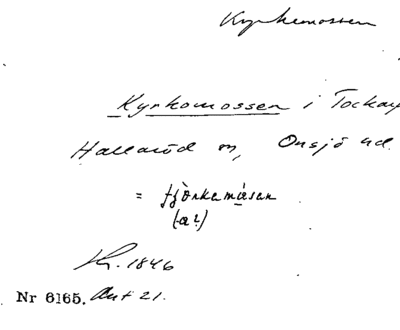 Kyrkemossen
Kyrkomossen i Tockarp
Hallaröd sn, Onsjö hd.
= fjö̀rkamåsan
(a?)
1846
Nr 6165. Ant 21.